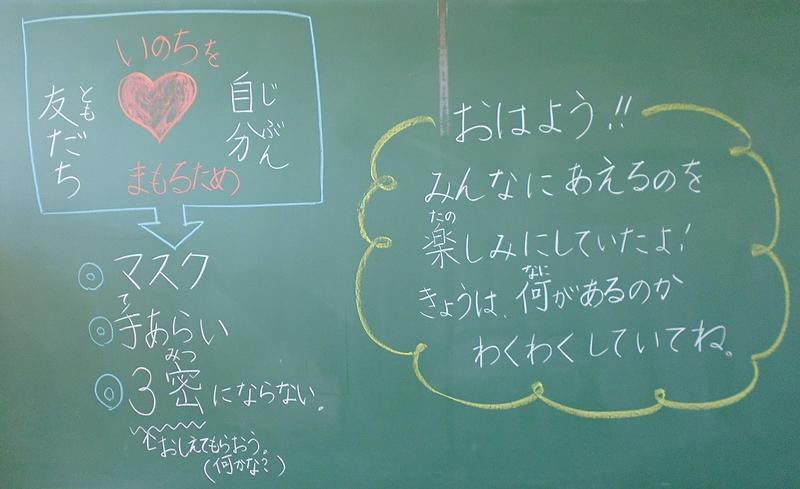 いのちを
自分
じぶん
友だち
とも
まもるため
◎ マスク
◎ 手あらい
て
◎ 3密にならない。
みつ
おしえてもらおう。
(何かな?)
おはよう!!
みんなにあえるのを
楽しみにしていたよ!
たの
きょうは、何があるのか
なに
わくわくしていてね。